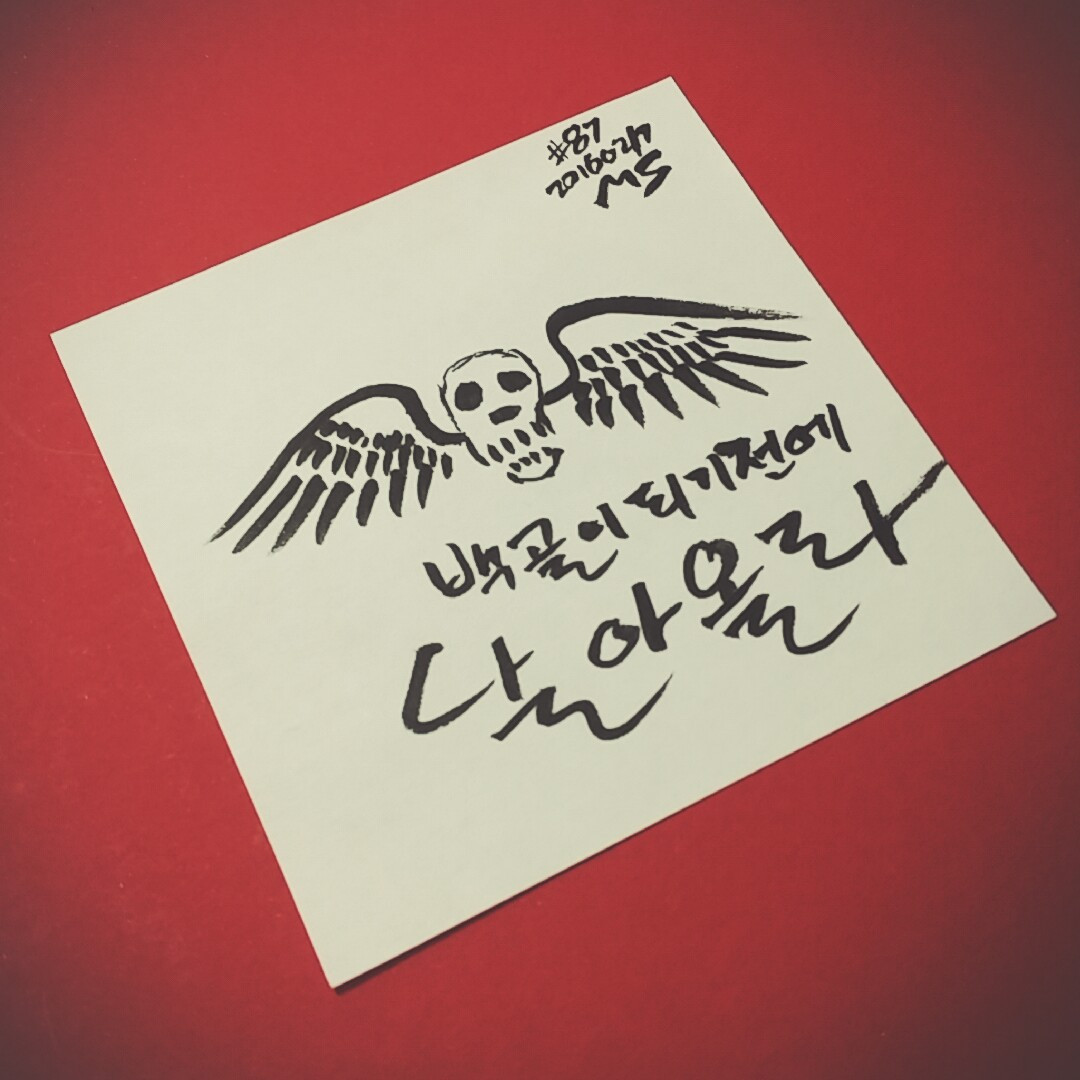 #87
20160214
MS
백골이 되기전에
날아올라